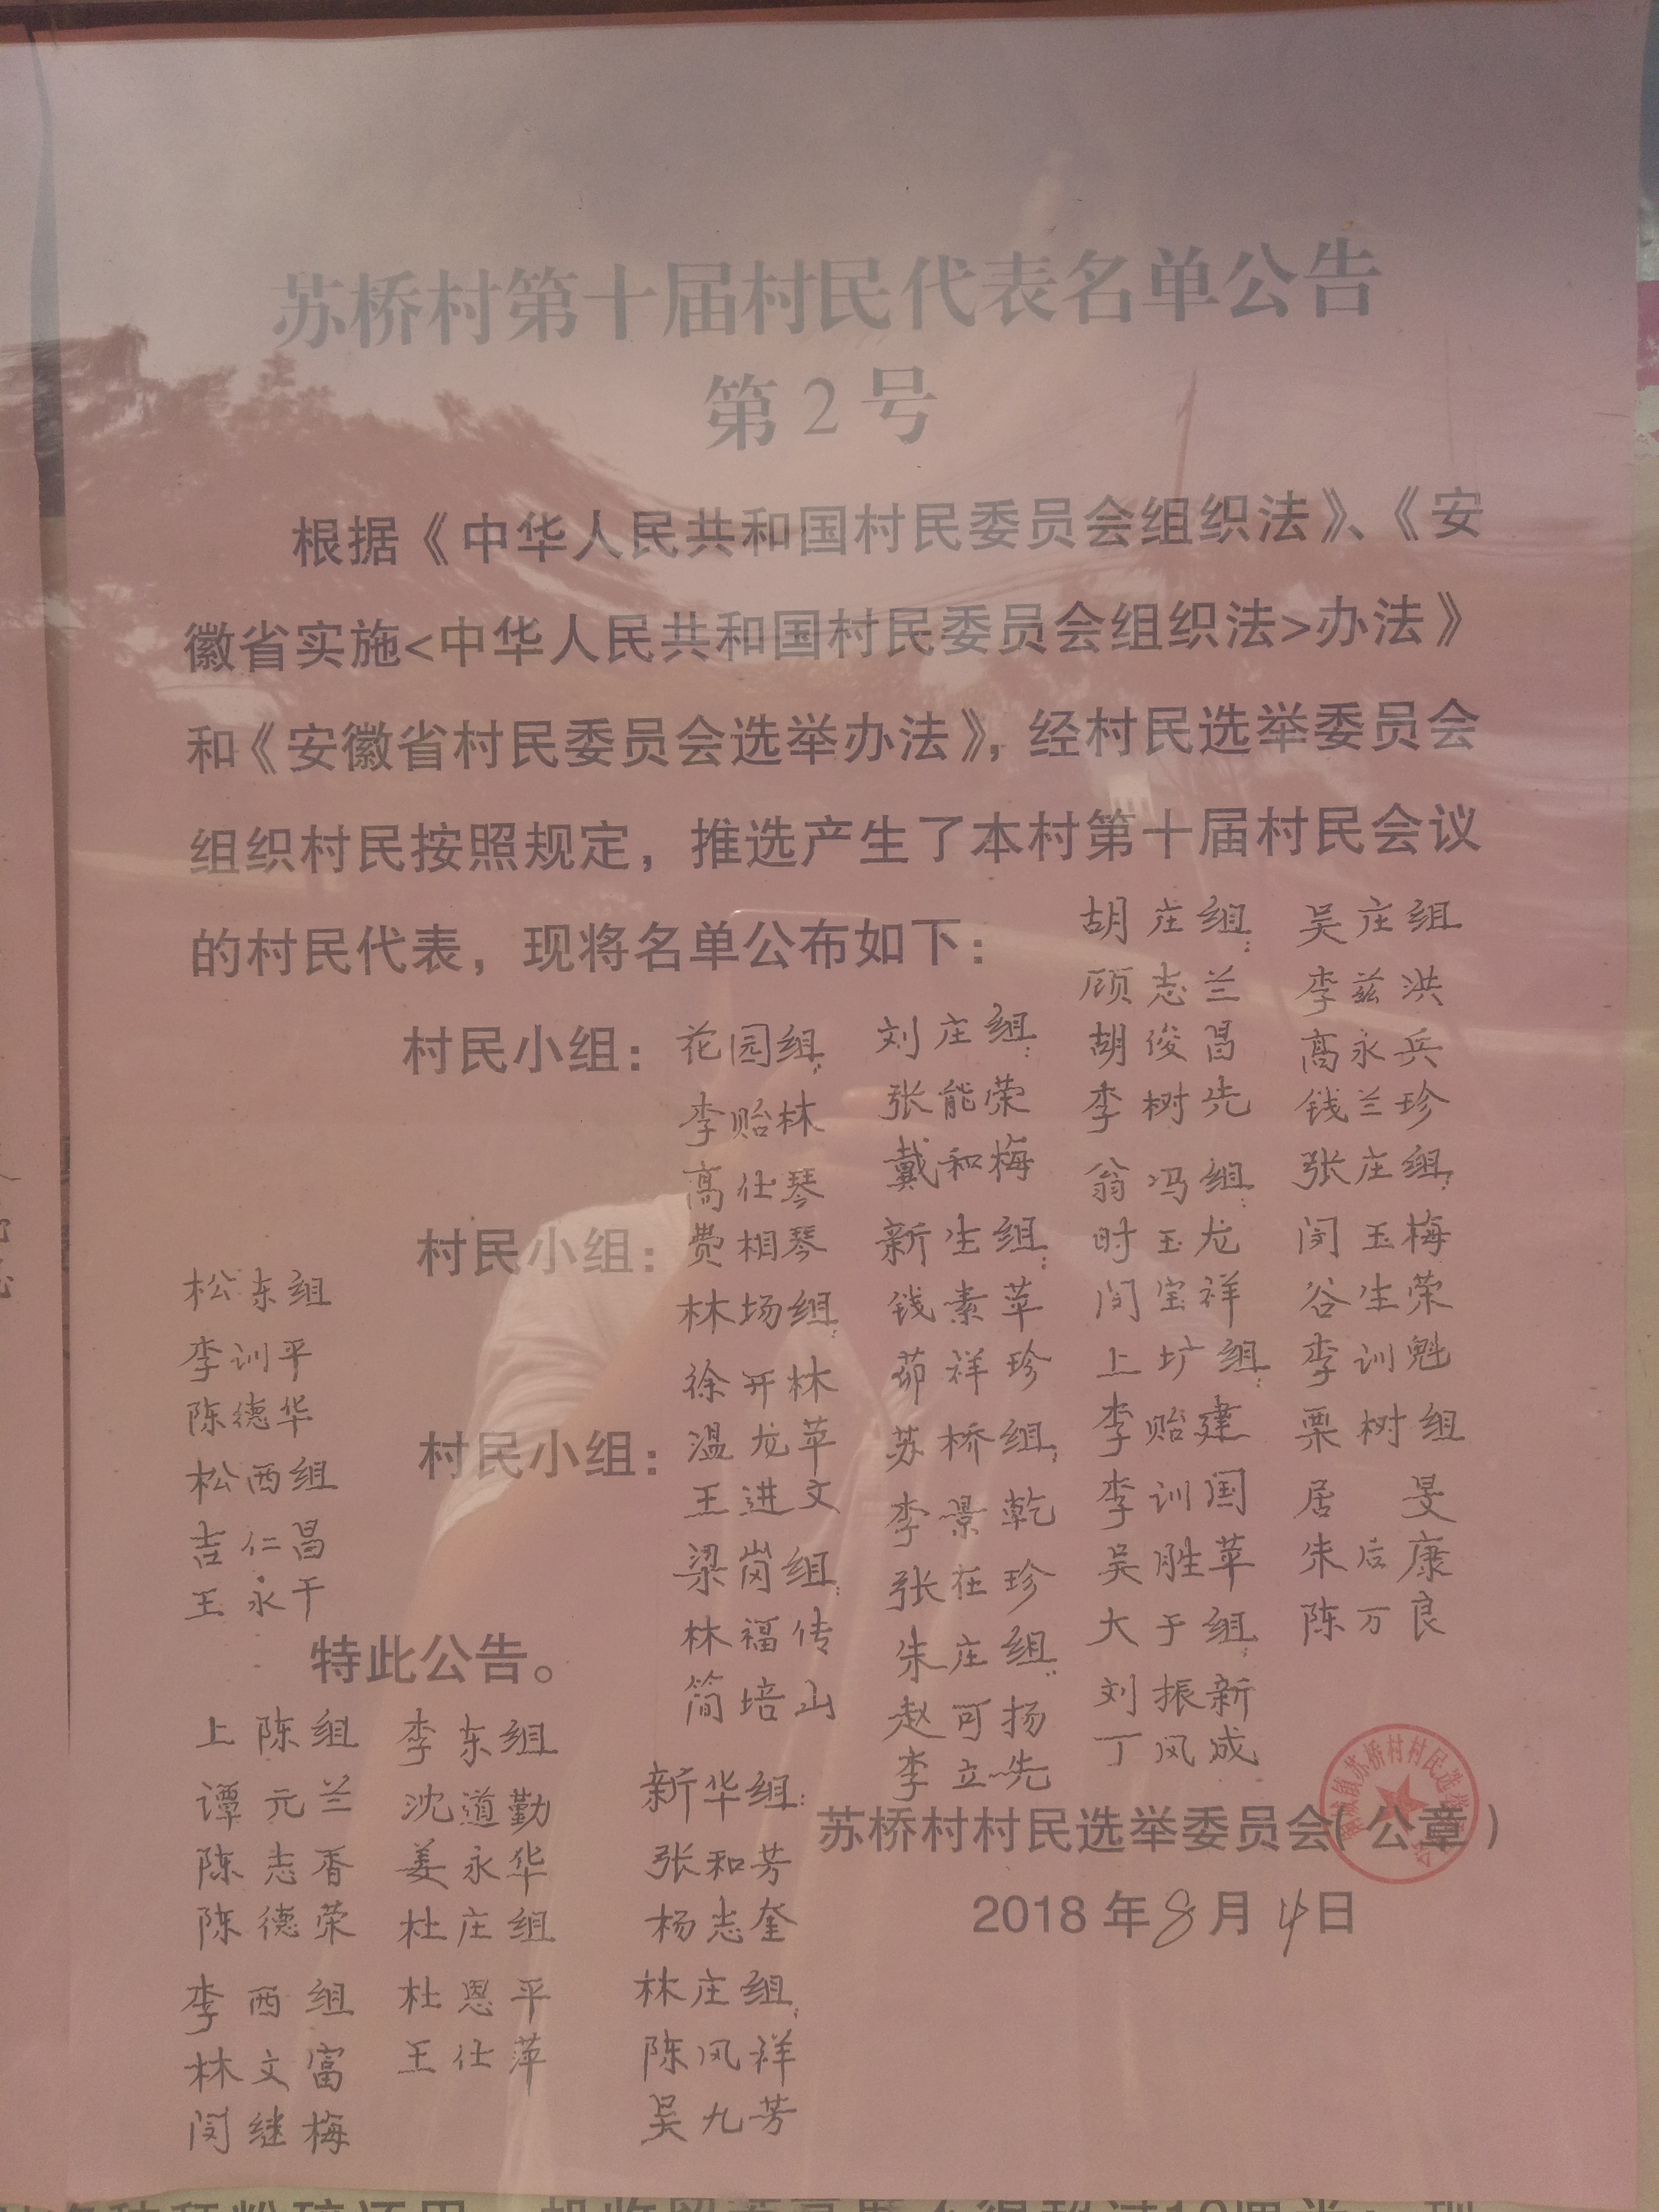 苏桥村第十届村民代表名单公告
第2号
根据《中华人民共和国村民委员会组织法》、《安
徽省实施<中华人民共和国村民委员会组织法>办法》
和《安徽省村民委员会选举办法》,经村民选举委员会
组织村民按照规定，推选产生了本村第十届村民会议
的村民代表，现将名单公布如下：
村民小组：
村民小组：
村民小组：
花园组:
李贻林
高仕琴
费相琴
林场组:
徐开林
温龙苹
王进文
梁岗组:
林福传
简培山
刘庄组:
张能荣
戴和梅
新生组:
钱素苹
茆祥珍
苏桥组:
李景乾
张在珍
朱庄组:
赵可扬
李立先
胡庄组:
顾志兰
胡俊昌
李树先
翁冯组:
时玉龙
闵宝祥
上圹组:
李贻建
李训国
吴胜苹
大于组:
刘振新
丁风成
吴庄组
李兹洪
高永兵
钱兰珍
张庄组:
闵玉梅
谷生荣
李训魁
栗树组
居 旻
朱后康
陈万良
松东组
李训平
陈德华
松西组
吉仁昌
王永干
特此公告。
上陈组
谭元兰
陈志香
陈德荣
李西组
林文富
闵继梅
李东组
沈道勤
姜永华
杜庄组
杜恩平
王仕萍
新华组:
张和芳
杨志奎
林庄组:
陈凤祥
吴九芳
苏桥村村民选举委员会(公章)
2018年8月4日